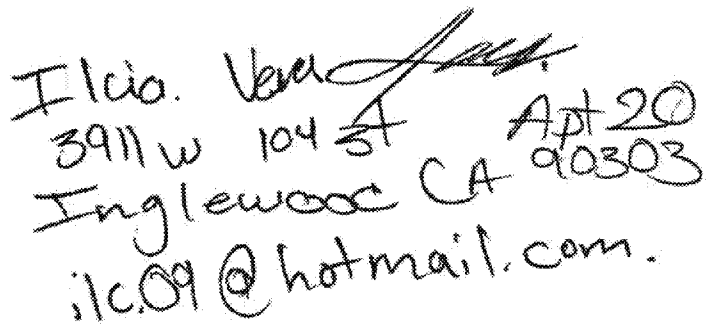 Ilcia. Vera
3911 w 104 st Apt 20
Inglewood CA 90303
ilc.09@hotmail.com.